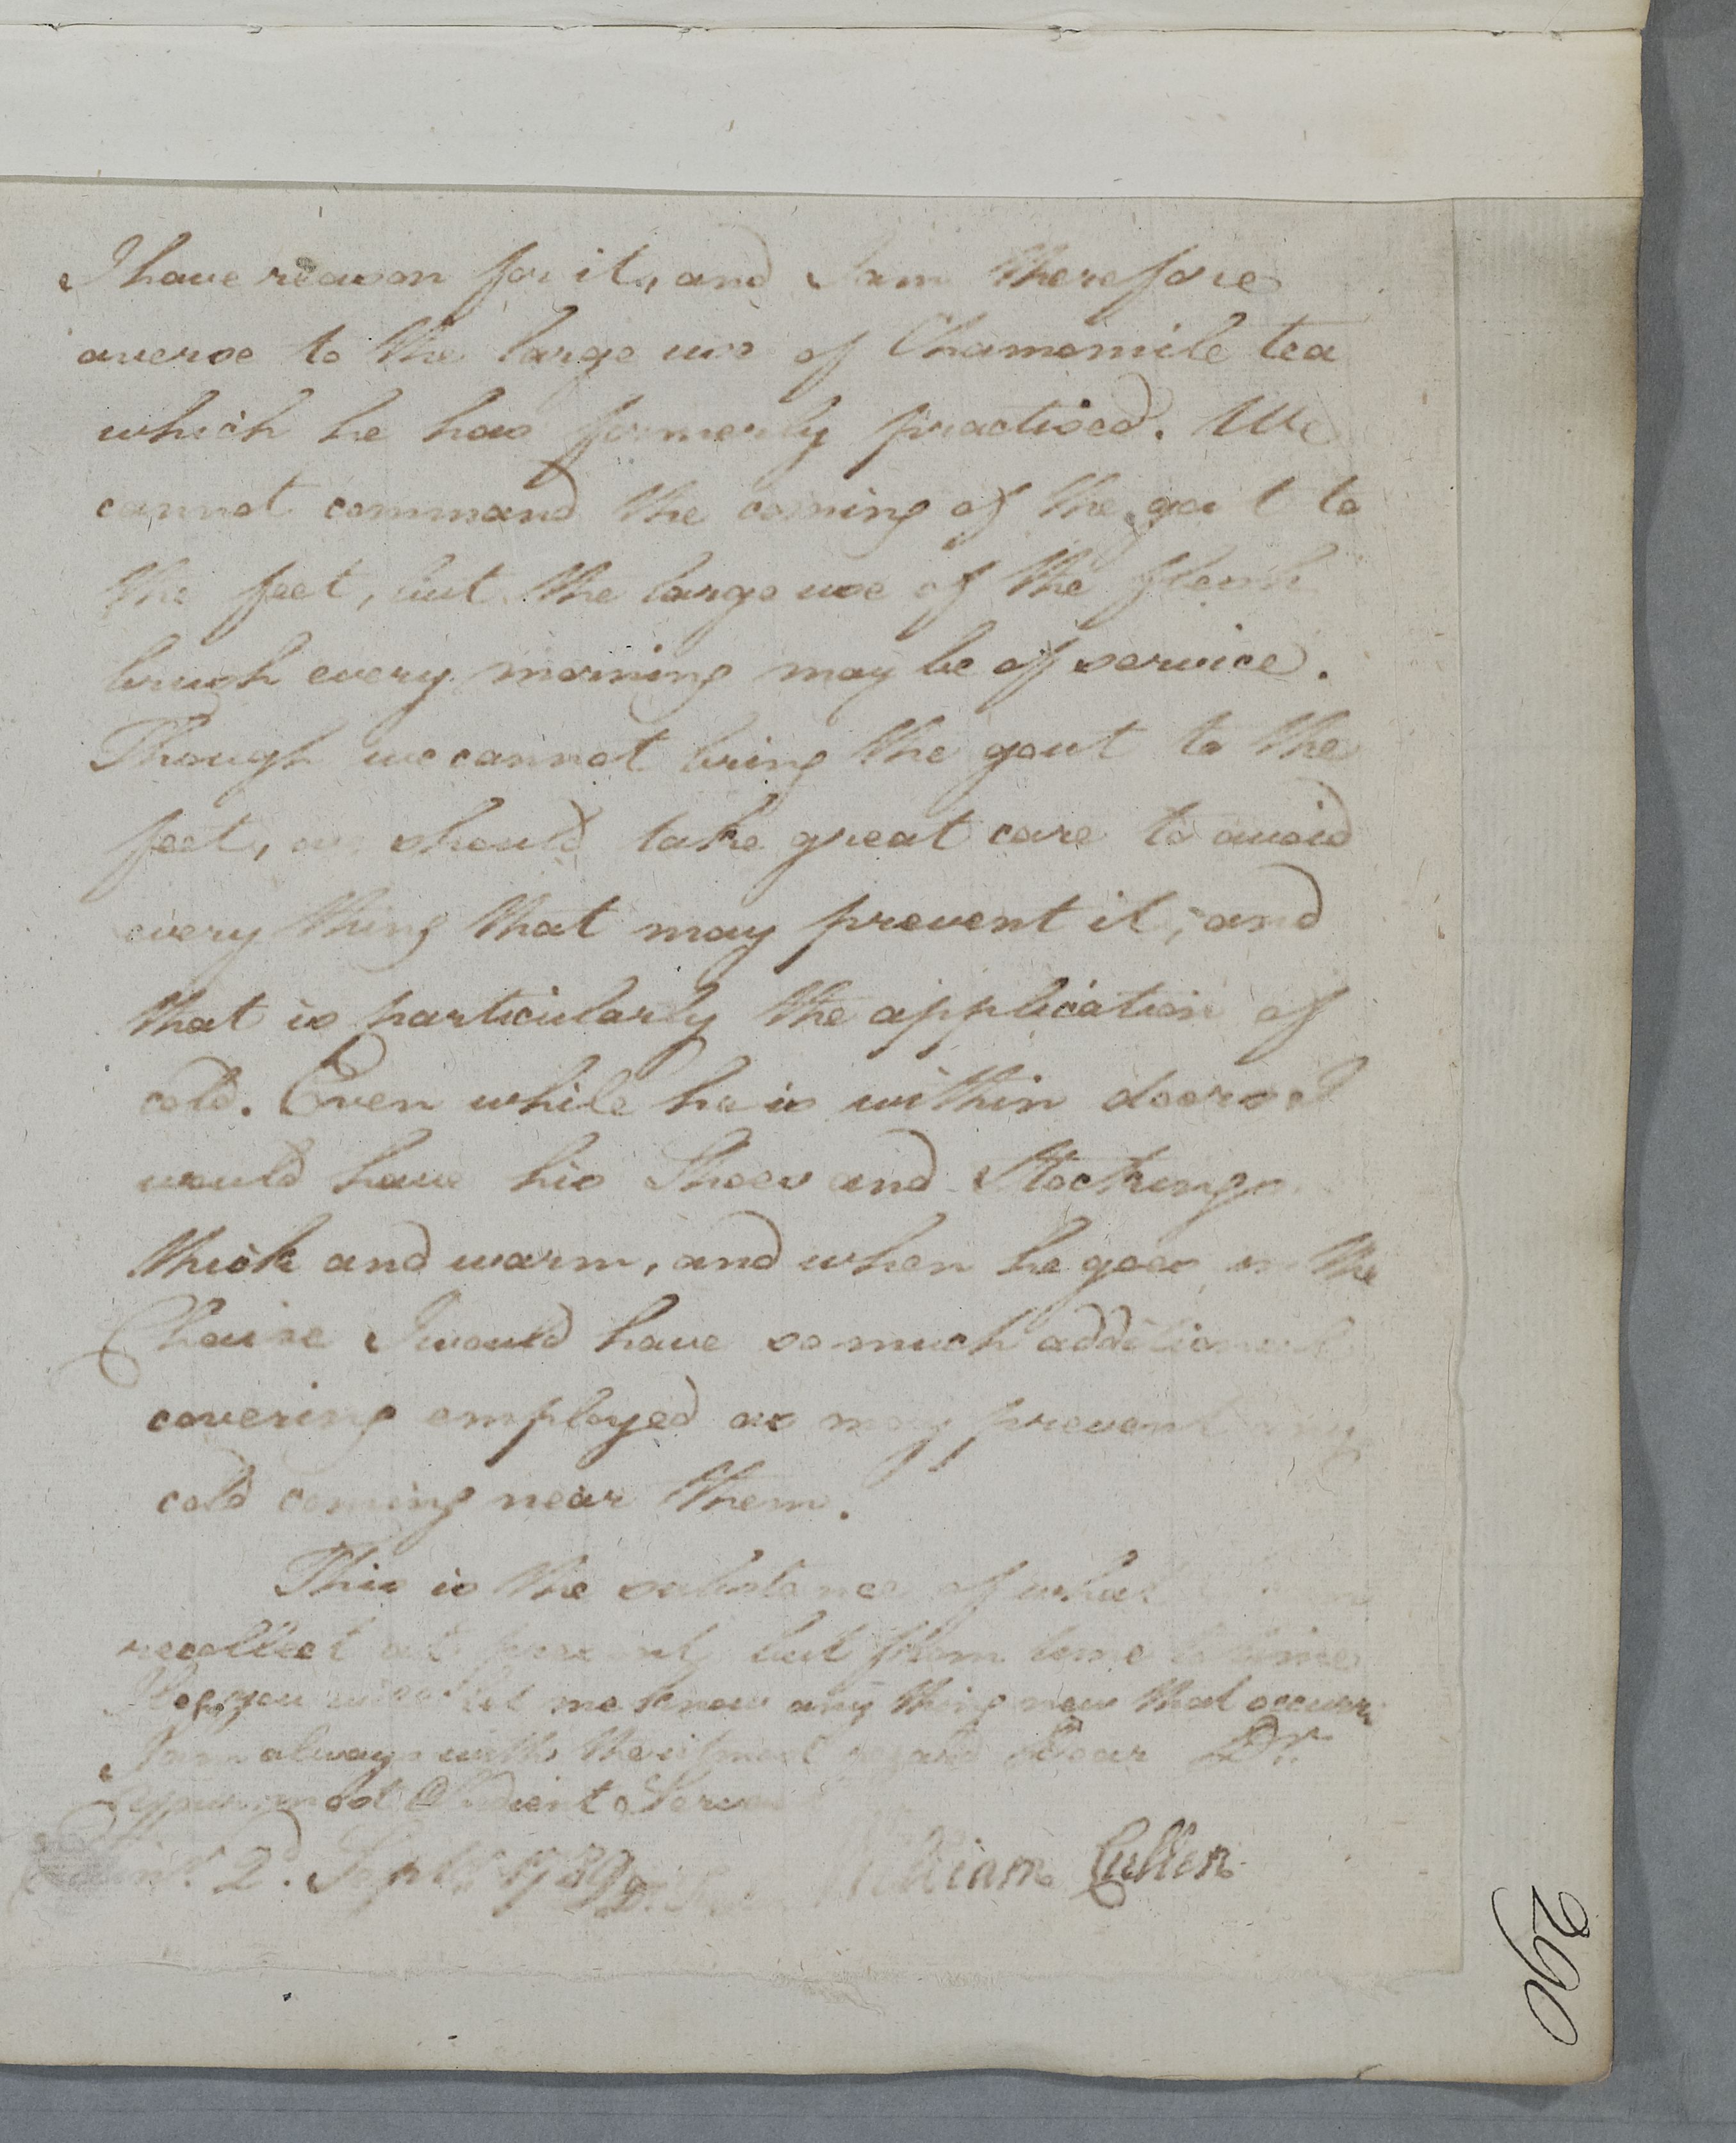 I have reason for it, and I am therefore
averse to the large use of Chamomile tea
which he has formerly practised. We
cannot command the coming of the gout to
the feet, but the large use of the flesh
brush every morning may be of service.
Though we cannot bring the gout to the
feet, we should take great care to avoid
every thing that may prevent it, and
that is particularly the application of
cold. Even while he is within doors I
would have his Shoes and Stockings
thick and warm, and when he goes in the
Chaise I would have so much additional
covering employed as may prevent any
cold coming near them.
This is the substance of what
recollect at present, but from time to time
I hope you will let me know any thing new that occurrs
I am always with the utmost regard Dear Dr.
your most Obedient Servant
Edinr. 2d. Septr. 1789 William Cullen
290